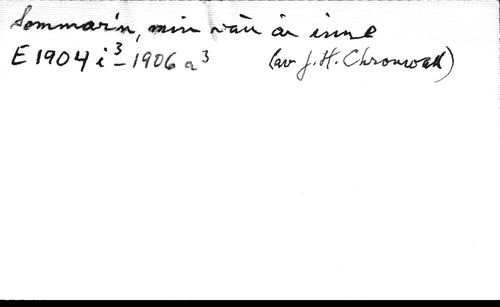 Sommar'n, min vän är inne
E 1904 i³ – 1906 a³ (av J. H. Chronwall)